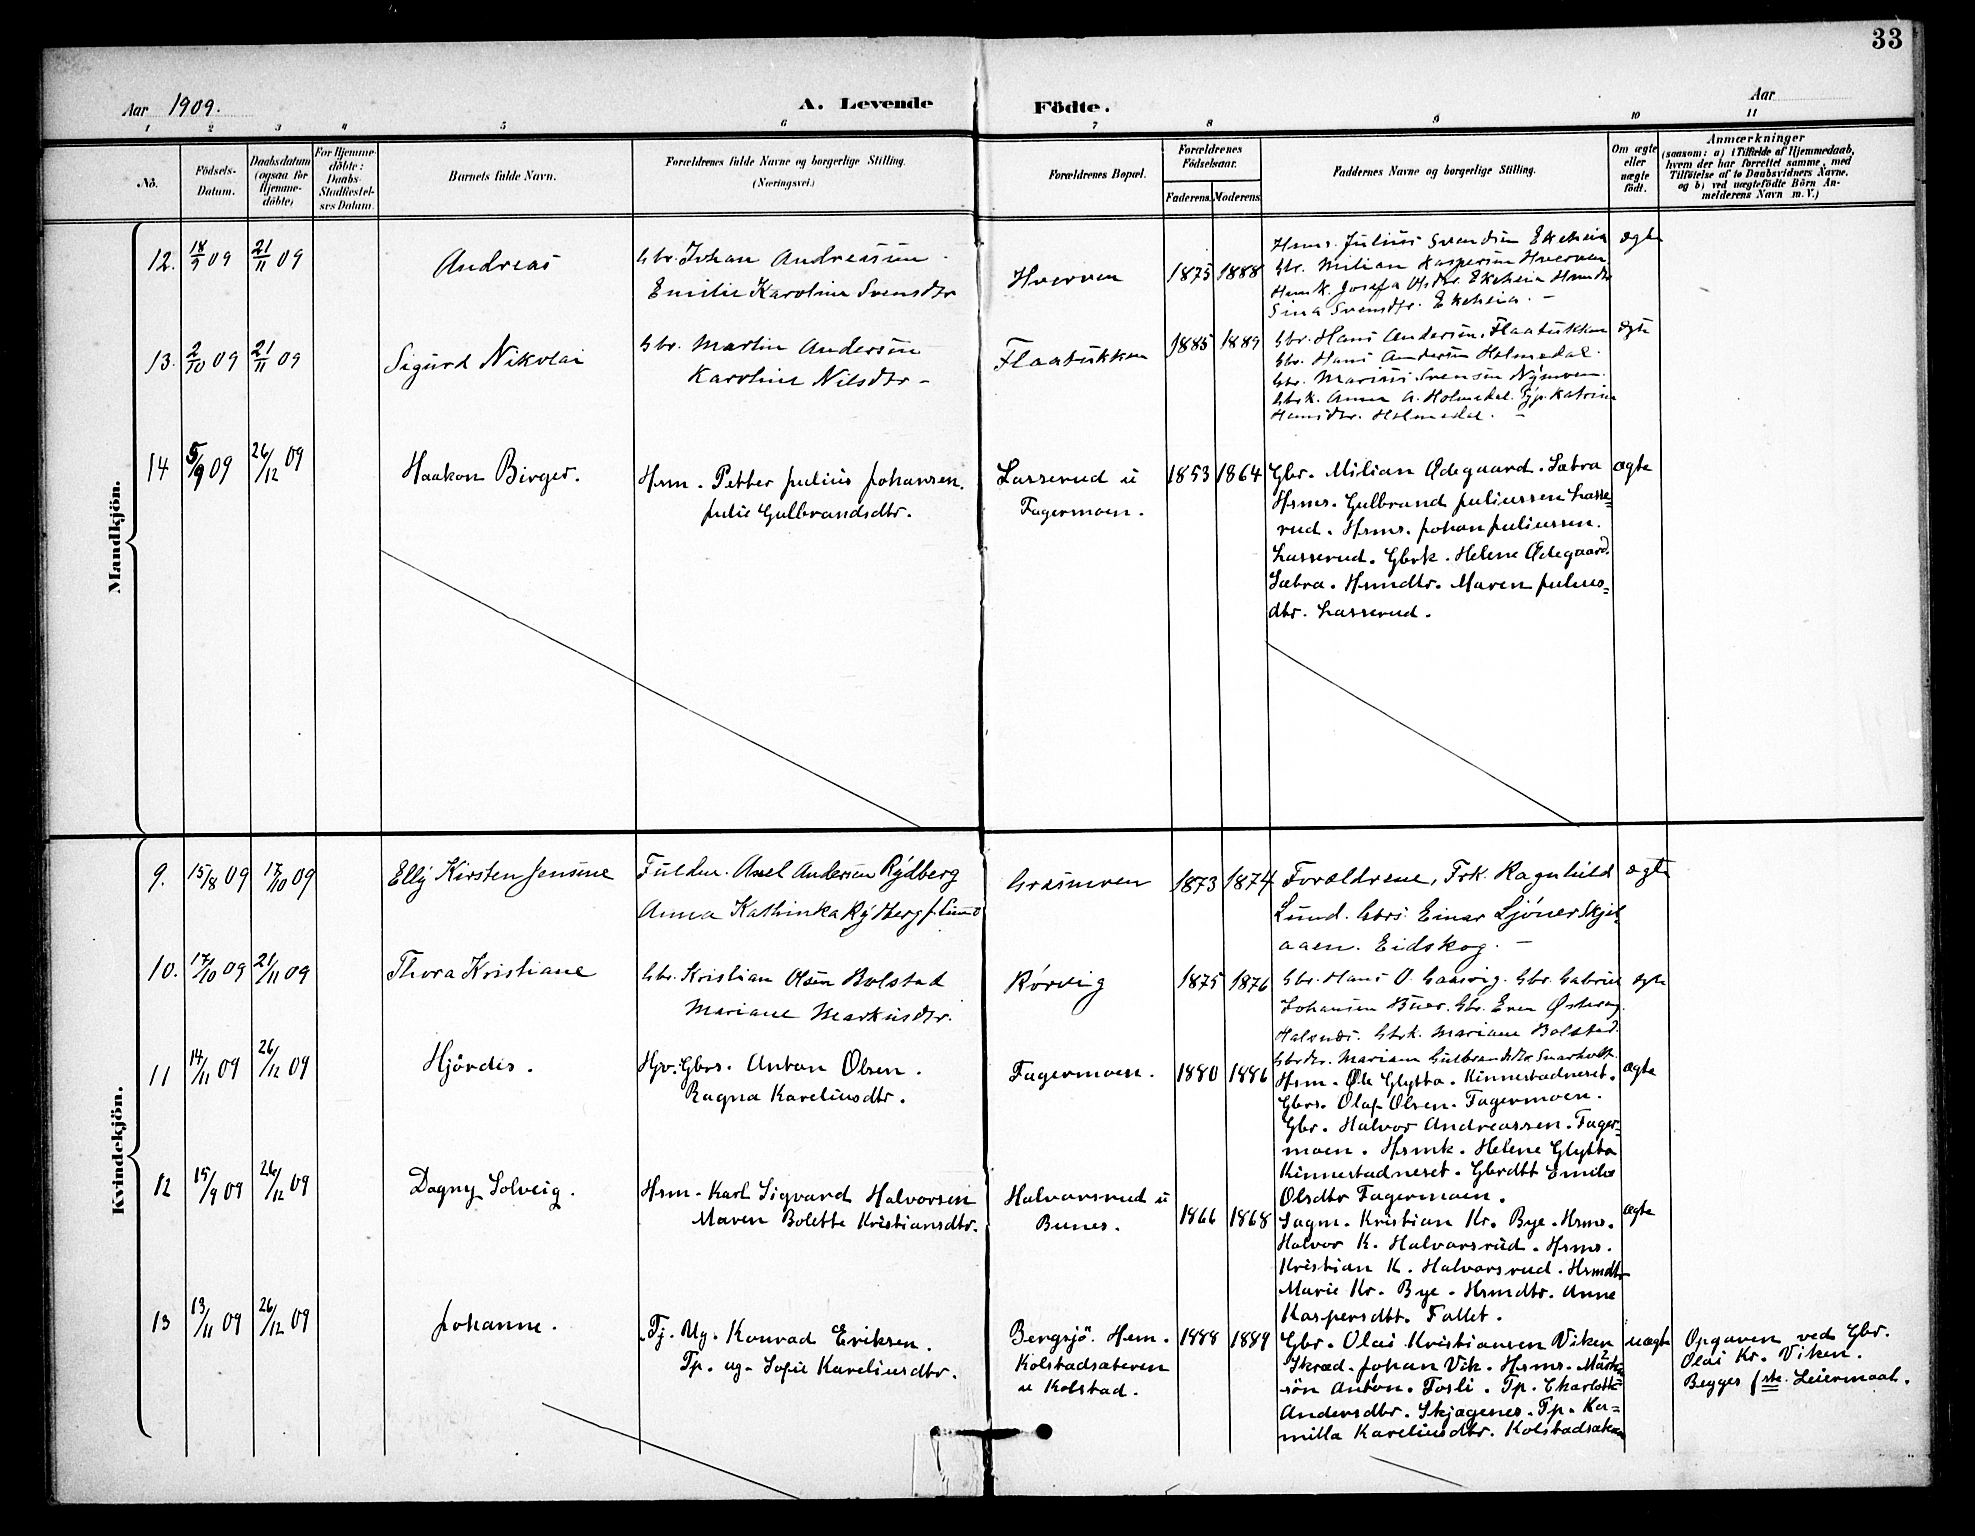 33
Aar 1909.
A. Levende Födte.
Aar
1 2 3 4 5 6 7 8 9 10 11
No.
Födsels-Datum.
Daabsdatum (ogsaa for Hjemmedöbte)
For Hjemmedöbte: Daabs-Stadfæstelses Datum.
Barnets fulde Navn.
Forældrenes fulde Navne og borgerlige Stilling. (Næringsvei.)
Forældrenes Bopæl.
Forældrenes Födselsaar.
Faderens. Moderens.
Faddernes Navne og borgerlige Stilling.
Om ægte eller uægte födt.
Anmærkninger
(saasom: a) i Tilfælde af Hjemmedaab,
hvem der har forrettet samme, med
Tilföielse af to Daabsvidners Navne.
og b) ved uægtefödte Börn An-
melderens Navn m. V.)
Mandkjön.
12. 18/9 09 21/11 09
Andreas
Gbr. Johan Andreassen
Emilie Karoline Svensdtr
Hverven
1875 1888
Hsms. Julius Svendsen Ekeheia
Gbr. Milian Kaspersen Hverven
Hsmk. Josefa Olsdtr. Ekeheia Hsmdtr
Sina Svensdtr. Ekeheia. -
ægte
13. 2/10 09 21/11 09
Sigurd Nikolai
Gbr. Martin Andersen
Karoline Nilsdtr -
Flaatukken
1885 1889
Gbr. Hans Andersen, Flaatukken
Gbr. Hans Andersen Holmedal.
Gbr. Marius Svensen Nýmoen.
Gbrk. Anna A. Holmedal. Tjp. Katrine
Hansdtr. Holmedal. -
ægte
14 5/9 09 26/12 09
Haakon Birger.
Hsm. Petter Julius Johansen.
Julie Gulbrandsdtr.
Lasserud u
Fagermoen.
1853 1864
Gbr. Milian Ødegaard. Sæbra
Hsms. Gulbrand Juliussen Lasse-
rud. Hsms. Johan Juliussen.
Lasserud. Gbrk. Helene Ødegaard.
Sæbra. Hsmdtr. Maren Julius-
dtr. Lasserud.
ægte
Kvindekjön.
9. 15/8 09 17/10 09
Elly Kirsten Jensine
Fuldm. Axel Andersen Rýdberg
Anna Kathinka Rýdberg f. Lund
Grasmoen
1873 1874
Forældrene, Frk. Ragnhild
Lund. Gbrs. Einar Ljöner Skjel-
aaen. Eidskog. -
ægte
10. 17/10 09 21/11 09
Thora Kristiane
Gbr. Kristian Olsen Bolstad
Mariane Markusdtr.
Rørvig
1875 1876
Gbr. Hans O. Gaasvig. Gbr. Gabriel
Johansen Buer. Gbr. Even Østeng
Halsnæs. Gbrk. Mariane Bolstad.
Gbrdtr. Mariam Gulbrandsdtr Snarholt.
ægte
11 14/11 09 26/12 09
Hjördis.
Hjv. Gbrs. Anton Olsen.
Ragna Kareliusdtr.
Fagermoen.
1880 1886
Hsm. Ole Glytta. Kinnestadneset.
Gbrs. Olaf Olsen. Fagermoen.
Gbr. Halvor Andreassen. Fager-
moen. Hsmk. Helene Glytta
Kinnestadneset. Gbrdtt Emilie
Olsdtr Fagermoen.
ægte
12 15/9 09 26/12 09
Dagny Solveig.
Hsm. Karl Sigvard Halvorsen
Maren Bolette Kristiansdtr.
Halvorsrud u
Bunes.
1866 1868
Sagm. Kristian Kr. Bye. Hsms.
Halvor K. Halvorsrud. Hsms.
Kristian K. Halvorsrud. Hsmdtr
Marie Kr. Bye. Hsmdtr. Anne
Kaspersdtt. Fallet.
ægte
13 13/11 09 26/12 09
Johanne.
Tj. Ug. Konrad Eriksen.
Tp. ug. Sofie Kareliusdtr.
Bergsjö. Hem.
Kolstadsæteren
u Kolstad.
1888 1889
Gbr. Olai Kristiansen Viken
Skræd. Johan Vik. Hsms.
Anton. Fosli. Tp. Charlotte
Andersdtr. Skjagenes. Tp. Ka-
milla Kareliusdtr. Kolstadsæteren
uægte
Opgaven ved Gbr.
Olai Kr. Viken.
Begges 1ste Leiermaal.